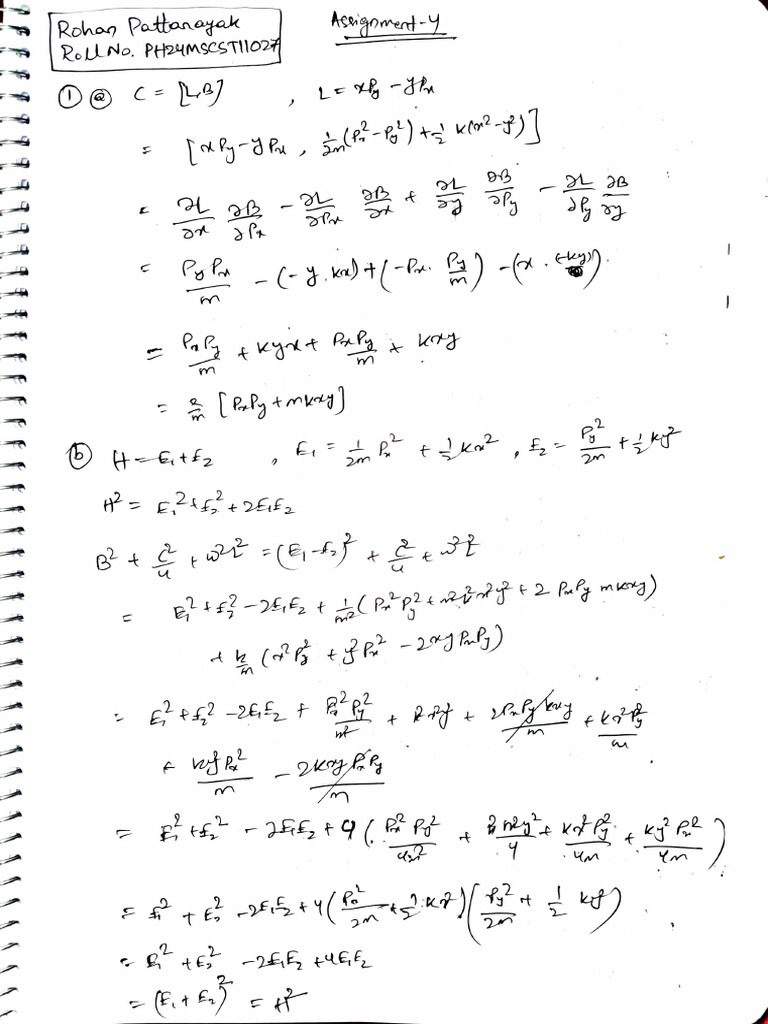 Rohan Pattanayak
Roll No. PH24MSCST11027
Assignment-4
① ⓐ C = [L,B] , L = xPy - yPx
= [xPy - yPx , 1/2m (Px² - Py²) + 1/2 k(x² - y²)]
= ∂L/∂x ∂B/∂Px - ∂L/∂Px ∂B/∂x + ∂L/∂y ∂B/∂Py - ∂L/∂Py ∂B/∂y
= PyPx/m - (-y.kx) + (-Px. Py/m) - (x.(-ky)).
= PxPy/m + kyx + PxPy/m + kxy
= 2/m [PxPy + mkxy]
ⓑ H = E₁ + E₂ , E₁ = 1/2m Px² + 1/2 kx² , E₂ = Py²/2m + 1/2 ky²
H² = E₁² + E₂² + 2E₁E₂
B² + C²/4 + ω²L² = (E₁ - E₂)² + C²/4 + ω²L²
= E₁² + E₂² - 2E₁E₂ + 1/m² (Px²Py² + m²k²x²y² + 2 PxPy mkxy)
+ k/m (x²Py² + y²Px² - 2xyPxPy)
= E₁² + E₂² - 2E₁E₂ + Px²Py²/m² + k²x²y² + 2PxPy kxy/m + kx²Py²/m
+ ky²Px²/m - 2kxy PxPy/m
= E₁² + E₂² - 2E₁E₂ + 4 ( Px²Py²/4m² + k²x²y²/4 + kx²Py²/4m + ky²Px²/4m )
= E₁² + E₂² - 2E₁E₂ + 4 (Px²/2m + 1/2 kx²) (Py²/2m + 1/2 ky²)
= E₁² + E₂² - 2E₁E₂ + 4E₁E₂
= (E₁ + E₂)² = H²